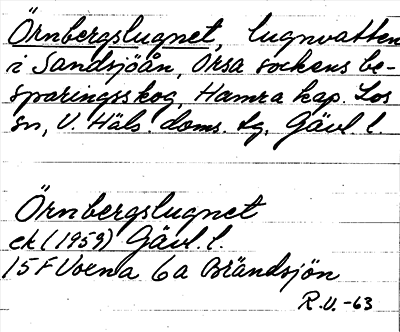 Örnbergslugnet, lugnvatten
i Sandsjöån, Orsa sockens be-
sparingsskog, Hamra kap. Los
sn, V. Häls. doms. tg, Gävl. l.
Örnbergslugnet
ek (1959) Gävl. l.
15F Voxna 6a Brändsjön
R.U.-63